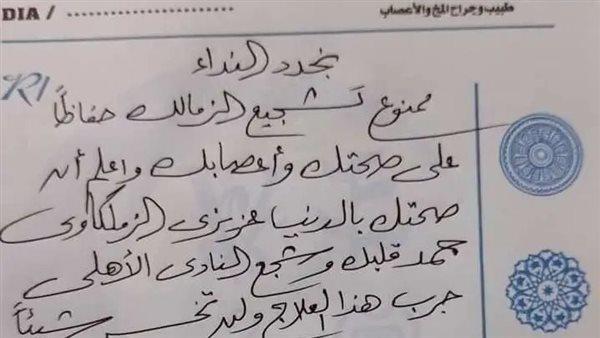 DIA / طبيب وجراح المخ والأعصاب
نجدد النداء
R/ ممنوع تشجيع الزمالك حفاظًا
على صحتك وأعصابك واعلم أن
صحتك بالدنيا عزيزى الزملكاوى
جمد قلبك وشجع النادى الأهلى
جرب هذا العلاج ولن تخسر شيئاً